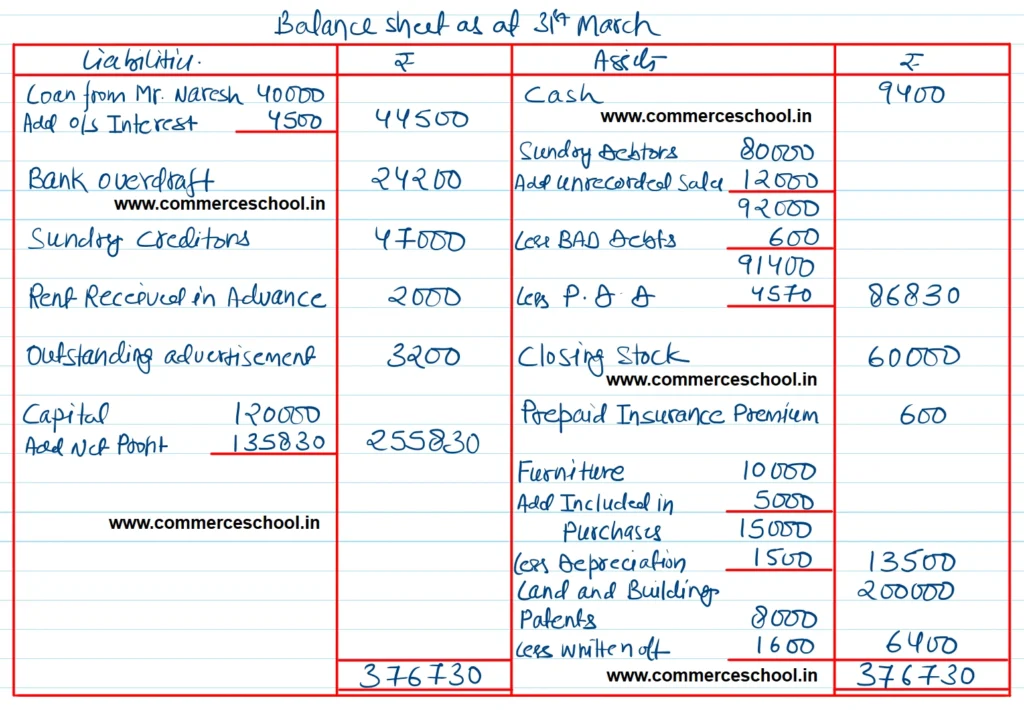 Balance sheet as at 31st March
Liabilities. ₹ Assets ₹
Loan from Mr. Naresh 40000
Add o/s Interest 4500 44500
Bank overdraft 24200
www.commerceschool.in
Sundry creditors 47000
Rent Received in Advance 2000
Outstanding advertisement 3200
Capital 120000
Add Net Profit 135830 255830
www.commerceschool.in
376730
Cash 9400
www.commerceschool.in
Sundry Debtors 80000
Add Unrecorded Sales 12000
92000
Less BAD Debts 600
91400
Less P. D. D 4570 86830
Closing Stock 60000
www.commerceschool.in
Prepaid Insurance Premium 600
Furniture 10000
Add Included in 5000
Purchases 15000
Less Depreciation 1500 13500
Land and Buildings 200000
Patents 8000
Less written off 1600 6400
www.commerceschool.in 376730